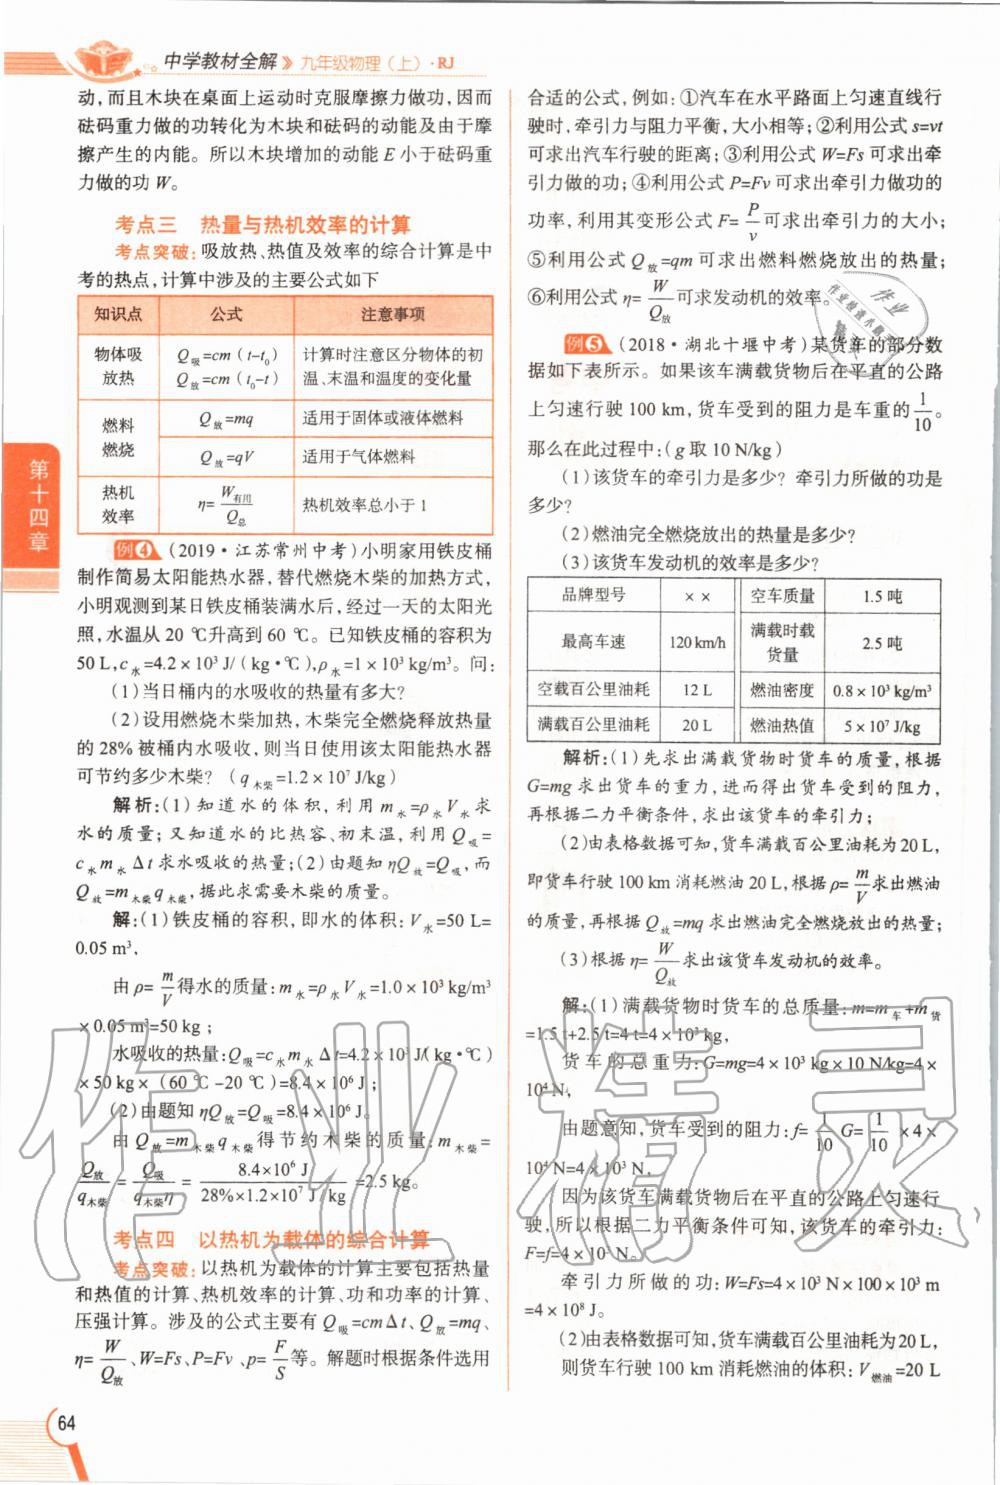 中学教材全解》九年级物理(上)·RJ
动,而且木块在桌面上运动时克服摩擦力做功,因而
砝码重力做的功转化为木块和砝码的动能及由于摩
擦产生的内能。所以木块增加的动能 E 小于砝码重
力做的功 W。
考点三 热量与热机效率的计算
考点突破:吸放热、热值及效率的综合计算是中
考的热点,计算中涉及的主要公式如下
知识点 公式 注意事项
物体吸放热 Q吸=cm(t-t₀) Q放=cm(t₀-t) 计算时注意区分物体的初温、末温和温度的变化量
燃料燃烧 Q放=mq 适用于固体或液体燃料
Q放=qV 适用于气体燃料
热机效率 η=W有用/Q总 热机效率总小于 1
例④ (2019·江苏常州中考)小明家用铁皮桶
制作简易太阳能热水器,替代燃烧木柴的加热方式,
小明观测到某日铁皮桶装满水后,经过一天的太阳光
照,水温从 20 ℃升高到 60 ℃。已知铁皮桶的容积为
50 L,c水=4.2×10³ J/(kg·℃),ρ水=1×10³ kg/m³。问:
(1)当日桶内的水吸收的热量有多大?
(2)设用燃烧木柴加热,木柴完全燃烧释放热量
的 28%被桶内水吸收,则当日使用该太阳能热水器
可节约多少木柴?(q木柴=1.2×10⁷ J/kg)
解析:(1)知道水的体积,利用 m水=ρ水V水求
水的质量;又知道水的比热容、初末温,利用 Q吸=
c水m水Δt 求水吸收的热量;(2)由题知 ηQ放=Q吸,而
Q放=m木柴q木柴,据此求需要木柴的质量。
解:(1)铁皮桶的容积,即水的体积:V水=50 L=
0.05 m³,
由 ρ=m/V 得水的质量:m水=ρ水V水=1.0×10³ kg/m³
×0.05 m³=50 kg;
水吸收的热量:Q吸=c水m水Δt=4.2×10³ J/(kg·℃)
×50 kg×(60 ℃-20 ℃)=8.4×10⁶ J;
(2)由题知 ηQ放=Q吸=8.4×10⁶ J。
由 Q放=m木柴q木柴得节约木柴的质量:m木柴=
Q放/q木柴=Q吸/q木柴η=8.4×10⁶ J/28%×1.2×10⁷ J/kg=2.5 kg。
考点四 以热机为载体的综合计算
考点突破:以热机为载体的计算主要包括热量
和热值的计算、热机效率的计算、功和功率的计算、
压强计算。涉及的公式主要有 Q吸=cmΔt、Q放=mq、
η=W/Q放、W=Fs、P=Fv、p=F/S等。解题时根据条件选用
合适的公式,例如:①汽车在水平路面上匀速直线行
驶时,牵引力与阻力平衡,大小相等;②利用公式 s=vt
可求出汽车行驶的距离;③利用公式 W=Fs 可求出牵
引力做的功;④利用公式 P=Fv 可求出牵引力做功的
功率,利用其变形公式 F=P/v可求出牵引力的大小;
⑤利用公式 Q放=qm 可求出燃料燃烧放出的热量;
⑥利用公式 η=W/Q放可求发动机的效率。
例⑤ (2018·湖北十堰中考)某货车的部分数
据如下表所示。如果该车满载货物后在平直的公路
上匀速行驶 100 km,货车受到的阻力是车重的1/10。
那么在此过程中:(g 取 10 N/kg)
(1)该货车的牵引力是多少?牵引力所做的功是
多少?
(2)燃油完全燃烧放出的热量是多少?
(3)该货车发动机的效率是多少?
品牌型号 ×× 空车质量 1.5 吨
最高车速 120 km/h 满载时载货量 2.5 吨
空载百公里油耗 12 L 燃油密度 0.8×10³ kg/m³
满载百公里油耗 20 L 燃油热值 5×10⁷ J/kg
解析:(1)先求出满载货物时货车的质量,根据
G=mg 求出货车的重力,进而得出货车受到的阻力,
再根据二力平衡条件,求出该货车的牵引力;
(2)由表格数据可知,货车满载百公里油耗为 20 L,
即货车行驶 100 km 消耗燃油 20 L,根据 ρ=m/V求出燃油
的质量,再根据 Q放=mq 求出燃油完全燃烧放出的热量;
(3)根据 η=W/Q放求出该货车发动机的效率。
解:(1)满载货物时货车的总质量:m=m车+m货
=1.5 t+2.5 t=4 t=4×10³ kg,
货车的总重力:G=mg=4×10³ kg×10 N/kg=4×
10⁴ N,
由题意知,货车受到的阻力:f=1/10 G=1/10×4×
10⁴ N=4×10³ N,
因为该货车满载货物后在平直的公路上匀速行
驶,所以根据二力平衡条件可知,该货车的牵引力:
F=f=4×10³ N。
牵引力所做的功:W=Fs=4×10³ N×100×10³ m
=4×10⁸ J。
(2)由表格数据可知,货车满载百公里油耗为 20 L,
则货车行驶 100 km 消耗燃油的体积:V燃油=20 L
第十四章
64
作业精灵